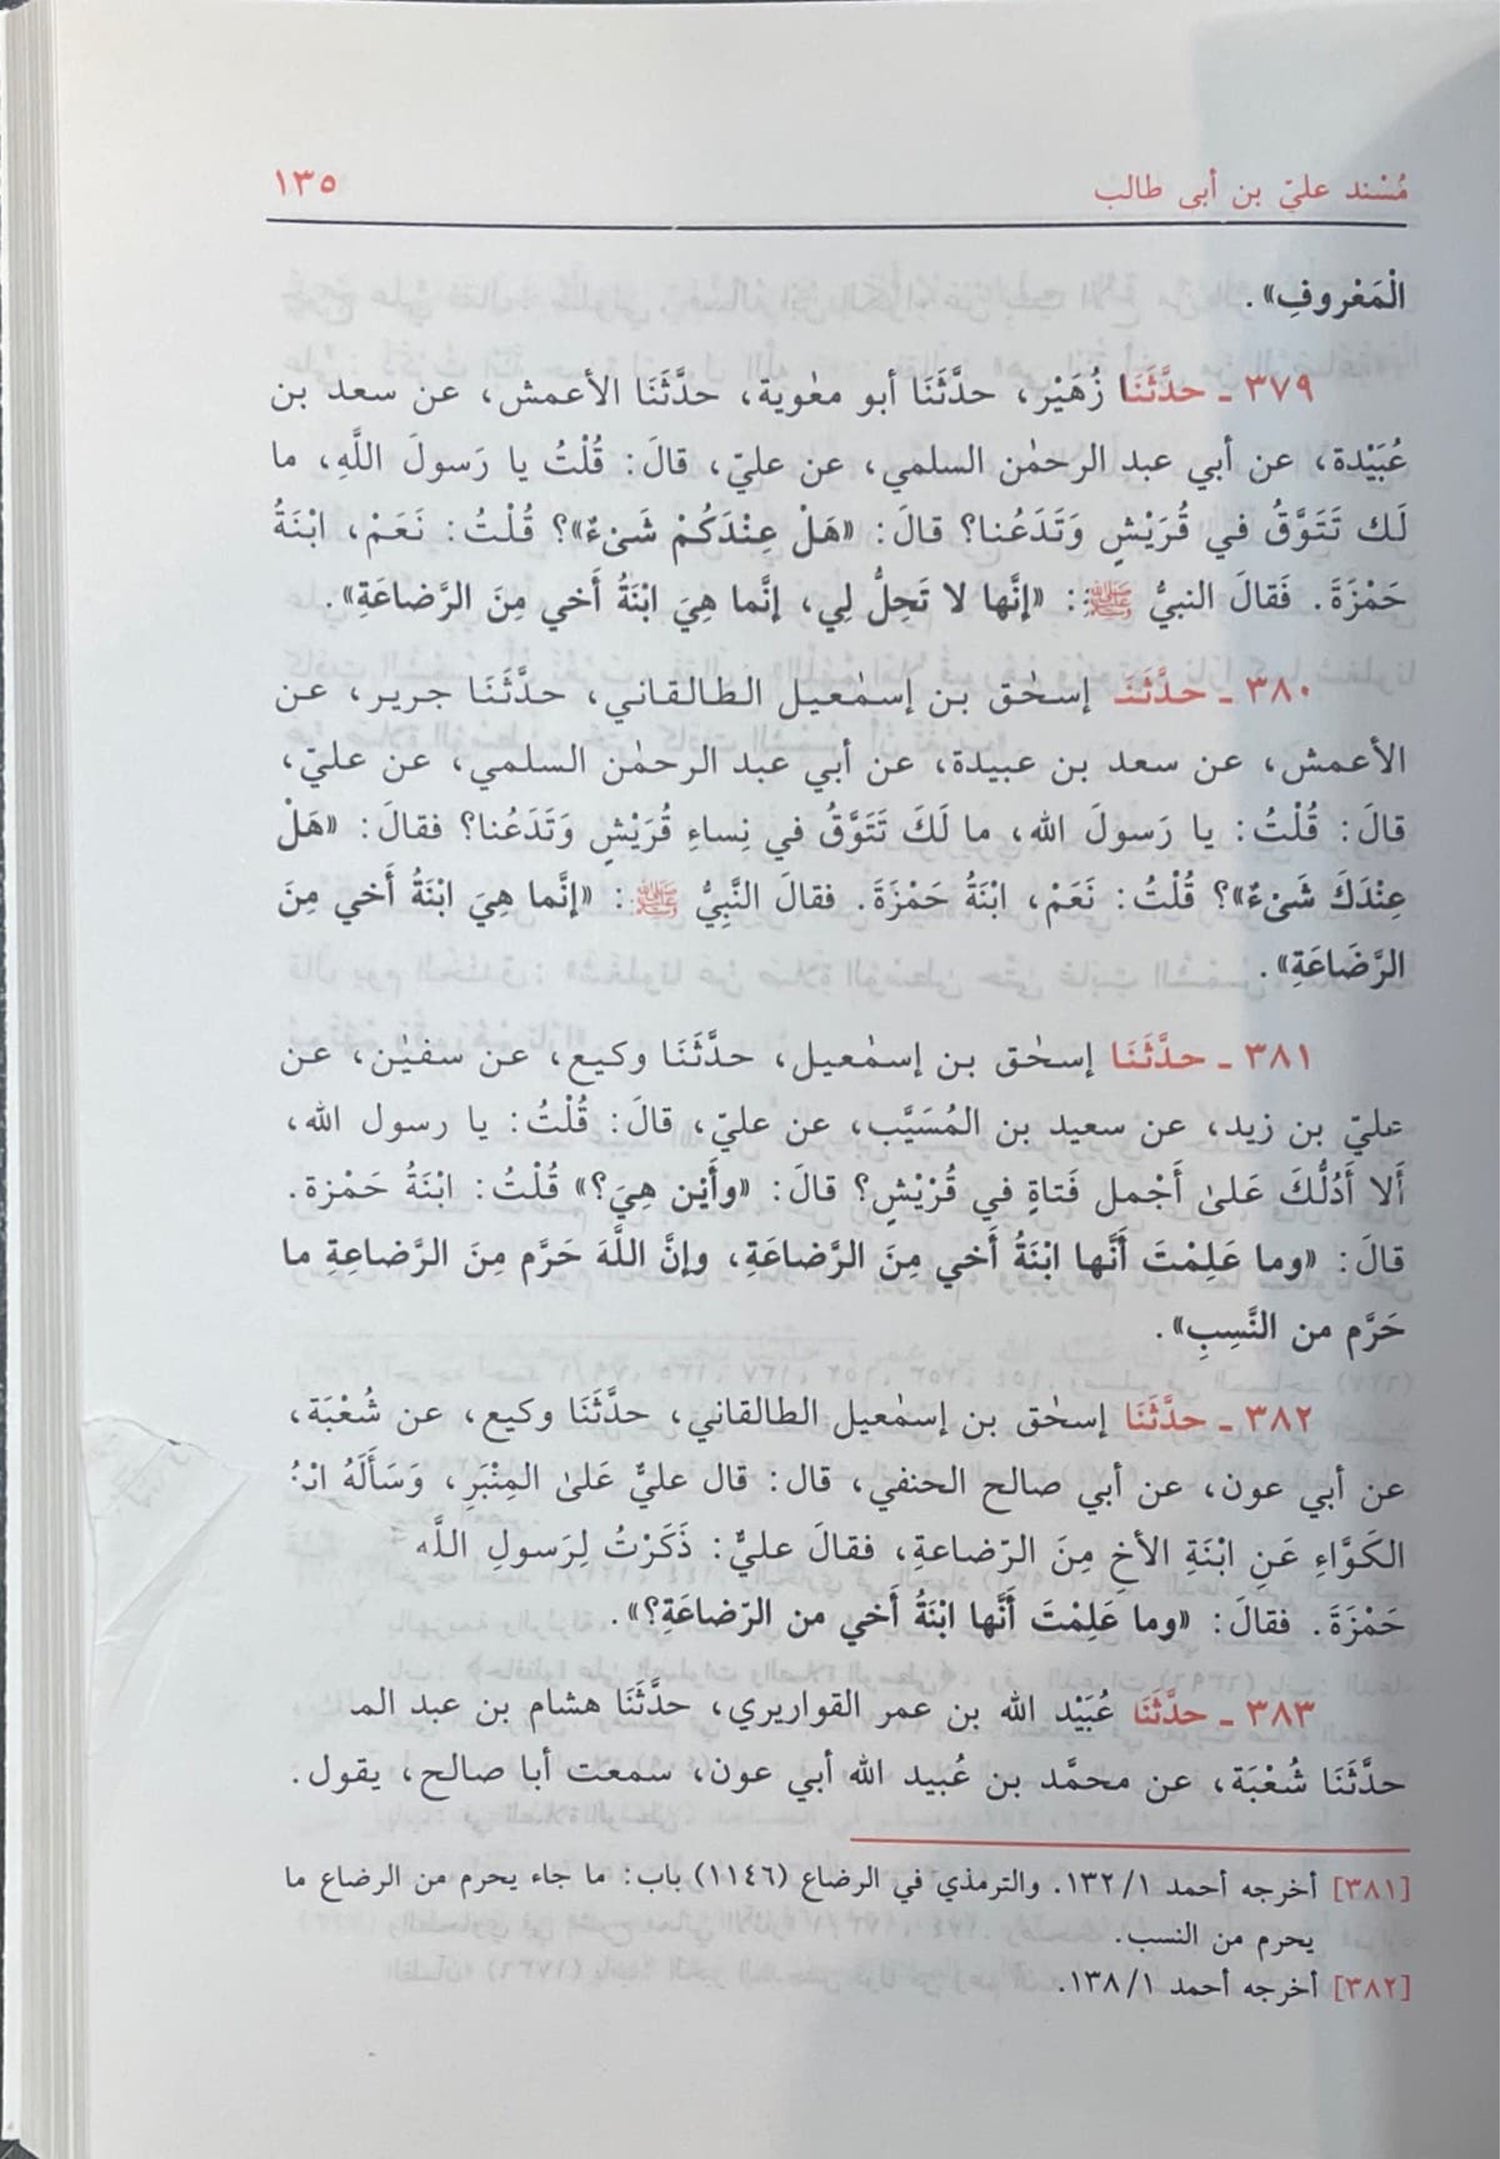 مُسْند عليّ بن أبي طالب ١٣٥
الْمَعْروفِ».
٣٧٩ ـ حدَّثَنَا زُهَيْر، حدَّثَنَا أبو معٰوية، حدَّثَنَا الأعمش، عن سعد بن
عُبَيْدة، عن أبي عبد الرحمٰن السلمي، عن عليّ، قالَ: قُلْتُ يا رَسولَ اللَّهِ، ما
لَك تَتَوَّقُ في قُرَيْشٍ وَتَدَعُنا؟ قالَ: «هَلْ عِنْدَكُمْ شَىْءٌ»؟ قُلْتُ: نَعَمْ، ابْنَةُ
حَمْزَةَ. فَقالَ النبيُّ ﷺ: «إنَّها لا تَحِلُّ لِي، إنَّما هِيَ ابْنَةُ أَخي مِنَ الرَّضاعَةِ».
٣٨٠ ـ حدَّثَنَـ إسحٰق بن إسمٰعيل الطالقاني، حدَّثَنَا جرير، عن
الأعمش، عن سعد بن عبيدة، عن أبي عبد الرحمٰن السلمي، عن عليّ،
قالَ: قُلْتُ: يا رَسولَ الله، ما لَكَ تَتَوَّقُ في نِساءِ قُرَيْشٍ وَتَدَعُنا؟ فقالَ: «هَلْ
عِنْدَكَ شَىْءٌ»؟ قُلْتُ: نَعَمْ، ابْنَةُ حَمْزَةَ. فقالَ النَّبِيُّ ﷺ: «إنَّما هِيَ ابْنَةُ أَخي مِنَ
الرَّضَاعَةِ».
٣٨١ ـ حدَّثَنَا إسحٰق بن إسمٰعيل، حدَّثَنَا وكيع، عن سفيٰن، عن
عليّ بن زيد، عن سعيد بن المُسَيَّب، عن عليّ، قالَ: قُلْتُ: يا رسول الله،
أَلا أَدُلُّكَ عَلىٰ أَجْمل فَتاةٍ في قُرْيْشٍ؟ قالَ: «وأَيْن هِيَ؟» قُلْتُ: ابْنَةُ حَمْزة.
قالَ: «وما عَلِمْتَ أَنَّها ابْنَةُ أَخي مِنَ الرَّضاعَةِ، وإنَّ اللَّهَ حَرَّم مِنَ الرَّضاعِةِ ما
حَرَّم من النَّسِبِ».
٣٨٢ ـ حدَّثَنَا إسحٰق بن إسمٰعيل الطالقاني، حدَّثَنَا وكيع، عن شُعْبَة،
عن أبي عون، عن أبي صالح الحنفي، قال: قال عليٌّ عَلىٰ المِنْبَرِ، وَسَأَلَهُ
الكَوَّاءِ عَنِ ابْنَةِ الأخِ مِنَ الرّضاعةِ، فقالَ عليٌّ: ذَكَرْتُ لِرَسولِ اللَّه
حَمْزَةَ. فقالَ: «وما عَلِمْتَ أَنَّها ابْنَةُ أَخي من الرّضاعَةِ؟».
٣٨٣ ـ حدَّثَنَا عُبَيْد الله بن عمر القواريري، حدَّثَنَا هشام بن عبد
حدَّثَنَا شُعْبَة، عن محمَّد بن عُبيد الله أبي عون، سمعت أبا صالح، يقول.
[٣٨١] أخرجه أحمد ١/ ١٣٢. والترمذي في الرضاع (١١٤٦) باب: ما جاء يحرم من الرضاع ما
يحرم من النسب.
[٣٨٢] أخرجه أحمد ١/ ١٣٨.